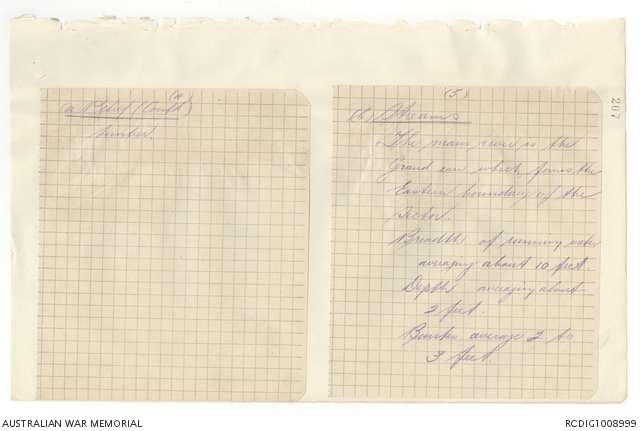 (4)
(a) Relief (Contd)
timber.
(5)
(b) Streams
The main river is the
Grand eau which forms the
Eastern boundary of the
Sector.
Breadths of running water
averaging about 10 feet.
Depths averaging about
2 feet.
Banks average 2 to
3 feet.
207
AUSTRALIAN WAR MEMORIAL
RCDIG1008999